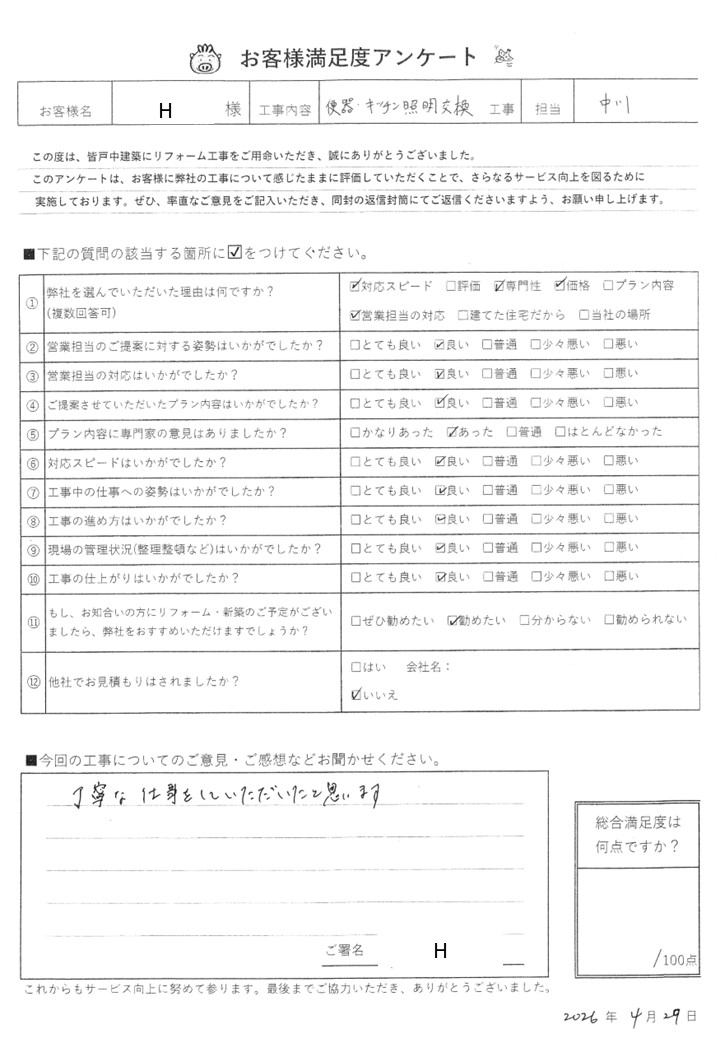 お客様満足度アンケート
お客様名 H 様 工事内容 便器・キッチン照明交換 工事 担当 中川
この度は、皆戸中建築にリフォーム工事をご用命いただき、誠にありがとうございました。
このアンケートは、お客様に弊社の工事について感じたままに評価していただくことで、さらなるサービス向上を図るために
実施しております。ぜひ、率直なご意見をご記入いただき、同封の返信封筒にてご返信くださいますよう、お願い申し上げます。
■下記の質問の該当する箇所に☑をつけてください。
① 弊社を選んでいただいた理由は何ですか？
(複数回答可)
☑対応スピード □評価 ☑専門性 ☑価格 □プラン内容
☑営業担当の対応 □建てた住宅だから □当社の場所
② 営業担当のご提案に対する姿勢はいかがでしたか？ □とても良い ☑良い □普通 □少々悪い □悪い
③ 営業担当の対応はいかがでしたか？ □とても良い ☑良い □普通 □少々悪い □悪い
④ ご提案させていただいたプラン内容はいかがでしたか？ □とても良い ☑良い □普通 □少々悪い □悪い
⑤ プラン内容に専門家の意見はありましたか？ □かなりあった ☑あった □普通 □ほとんどなかった
⑥ 対応スピードはいかがでしたか？ □とても良い ☑良い □普通 □少々悪い □悪い
⑦ 工事中の仕事への姿勢はいかがでしたか？ □とても良い ☑良い □普通 □少々悪い □悪い
⑧ 工事の進め方はいかがでしたか？ □とても良い ☑良い □普通 □少々悪い □悪い
⑨ 現場の管理状況(整理整頓など)はいかがでしたか？ □とても良い ☑良い □普通 □少々悪い □悪い
⑩ 工事の仕上がりはいかがでしたか？ □とても良い ☑良い □普通 □少々悪い □悪い
⑪ もし、お知合いの方にリフォーム・新築のご予定がござい
ましたら、弊社をおすすめいただけますでしょうか？
□ぜひ勧めたい ☑勧めたい □分からない □勧められない
⑫ 他社でお見積もりはされましたか？
□はい 会社名：
☑いいえ
■今回の工事についてのご意見・ご感想などお聞かせください。
丁寧な仕事をしていただいたと思います
ご署名 H
総合満足度は
何点ですか？
/100点
これからもサービス向上に努めて参ります。最後までご協力いただき、ありがとうございました。
2026年 4月29日